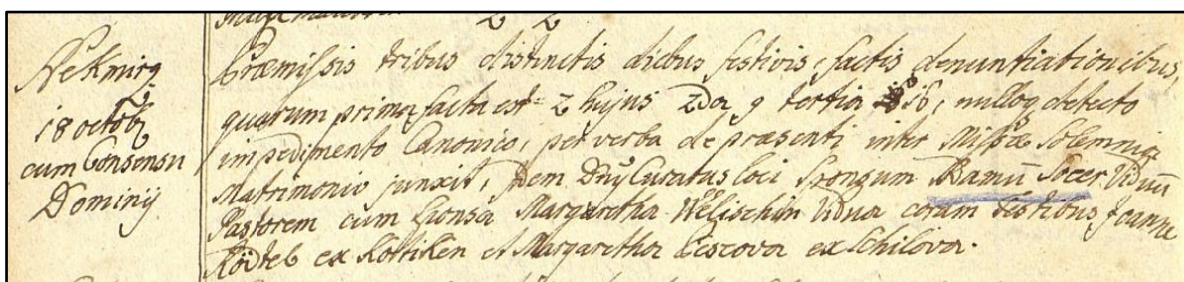 Nekmirz
18 octob
cum Consensu
Dominij
Præmissis tribus distinctis diebus festivis, factis denuntiationibus,
quarum prima facta est 2 hujus 2da 9 tertia 16, nulloq detecto
impedimento Canonico, per verba de præsenti inter Missæ Solemnia
Matrimonio junxit, Idem Dnus Curatus loci Sponsum Viduu
Pastorem cum sponsa Margaretha Welischin Vidua coram testibus Joanne
Ködtel ex Kottiken et Margaretha ex Schilova.